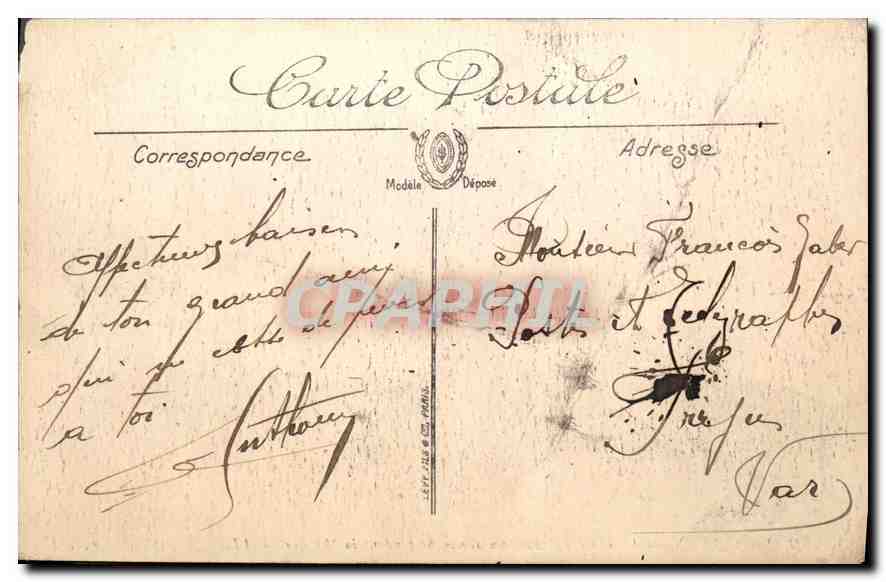 Carte Postale
Correspondance
Adresse
Modèle Déposé
Affectueux baisers
de ton grand ami
qui ne cesse de penser
a toi
Anthony
LEVY FILS & Cie, PARIS.
Monsieur François
Postes et Telegraphes
Frejus
Var
CPAPHIL